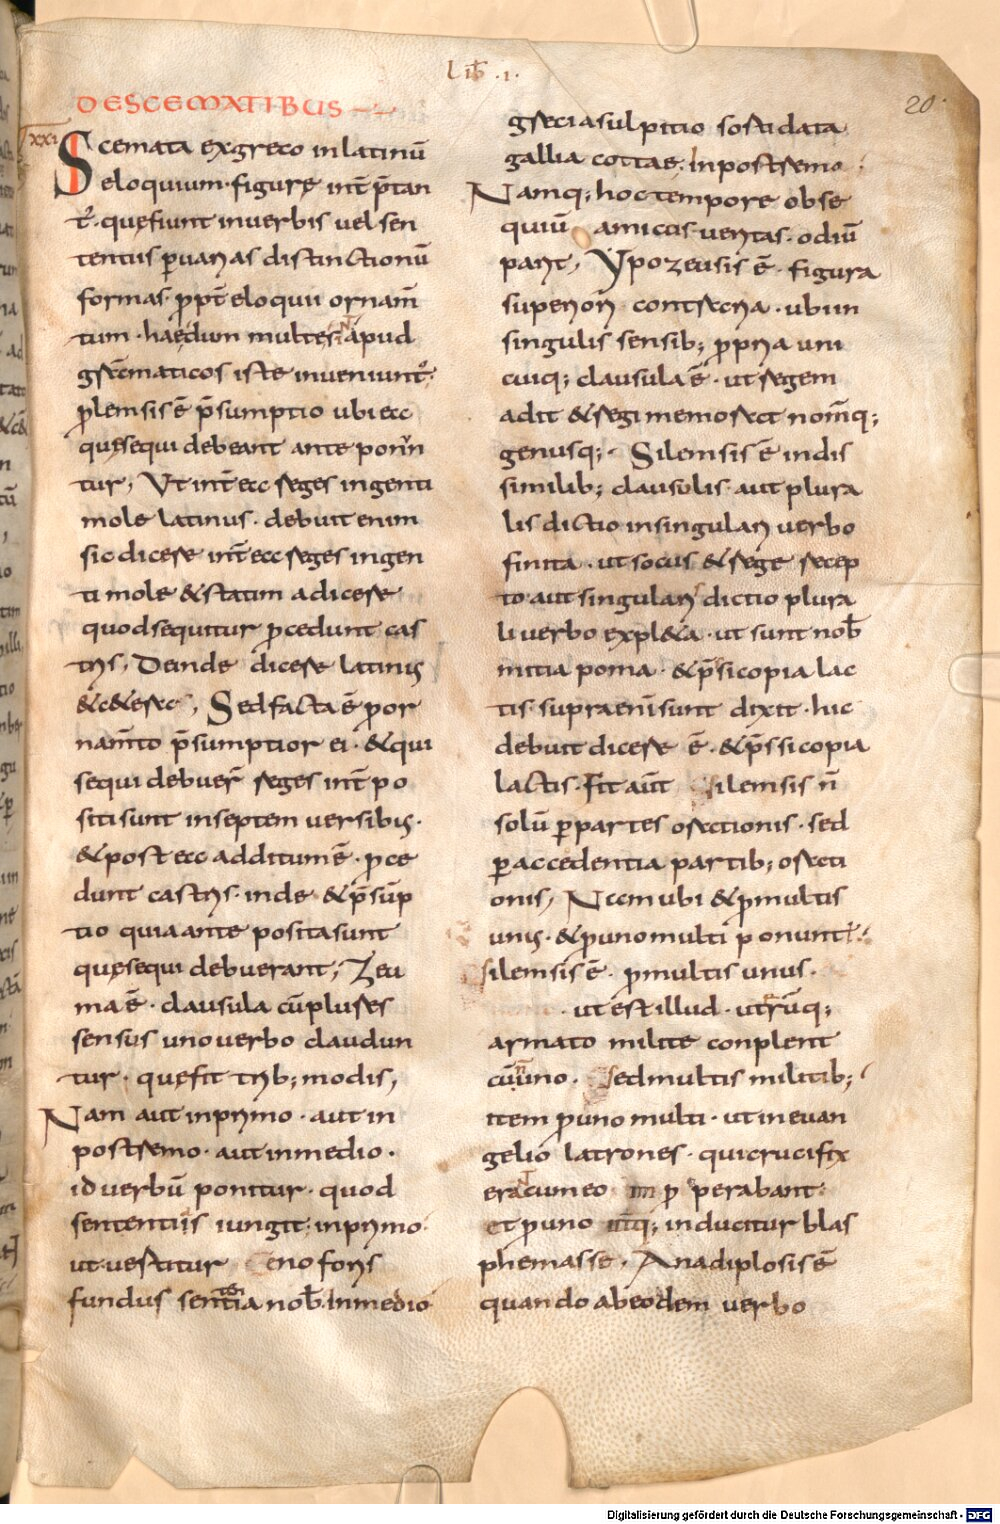 Lib .I.
20
DESCEMATIBUS
XXI
Scemata exgreco inlatinū
eloquium·figurę int̄ p̄tan
t᷒·quęfiunt inuerbis uel sen
tentiis ꝑuarias distinctionū
formas ꝓpt̄ eloquii ornam̄
tum·haec dum multa apud
grāmaticos iste inueniunt᷒·
ꝓlemsis ē p̄sumptio ubi ea
quęsequi debeant ante ponun
tur; Ut int̄ ea reges ingenti
mole latinus· debuit enim
sic dicere int̄ ea reges ingen
ti mole &statim adicere
quodsequitur ꝓcedunt cas
tris, Deinde dicere latinus
&c&era, Sedfacta ē ꝓor
nam̄to p̄sumptio rei·&qui
sequi debuer̄ reges int̄ po
siti sunt inseptem uersibus·
&post ea additum ē·ꝓce
dunt castris·inde &p̄sūp
tio quia ante posita sunt
quęsequi debuerant, Zeu
ma ē·clausula cū plures
sensus uno uerbo claudun
tur·quęfit trib; modis,
Nam aut inprimo·aut in
postremo·aut inmedio·
id uerbū ponitur·quod
sententiis iungit·inprimo
ut·uertitur enoforis
fundus sentia nob̄·Inmedio
grecia sulpitio sorti data
gallia cottae·Inpostremo
Namq; hoc tempore obse
quiū amicos·ueritas·odiū
parit, Ypozeusis ē·figura
superiori contraria·ubi in
singulis sensib; ꝓpria uni
cuiq; clausula ē·ut regem
adit &regi memorat nom̄q;
genusq;· Silemsis ē indis
similib; clausulis aut plura
lis dictio insingulari uerbo
finita·ut socus &rege recep
to aut singularis dictio plura
li uerbo expl&a·ut sunt nob̄
mitia poma·&p̄si copia lac
tis·supra enī sunt dixit·hic
debuit dicere ē·&p̄ssi copia
lactis·Fit aūt silemsis n̄
solū ꝑpartes orationis·sed
ꝑaccedentia partib; orati
onis, Nam ubi &ꝓmultis
unus·&ꝓuno multi ponunt᷒
silemsis ē·ꝓmultis unus·
ut est illud·utrūq;
armato milite conplent
cū uno·sed multis militib;
item ꝓuno multi·ut in euan
gelio latrones·qui crucifix
erat cum eo inproperabant·
et ꝓuno utq; inducitur blas
phemasse·Anadiplosis ē
quando ab eodem uerbo
Digitalisierung gefördert durch die Deutsche Forschungsgemeinschaft - DFG